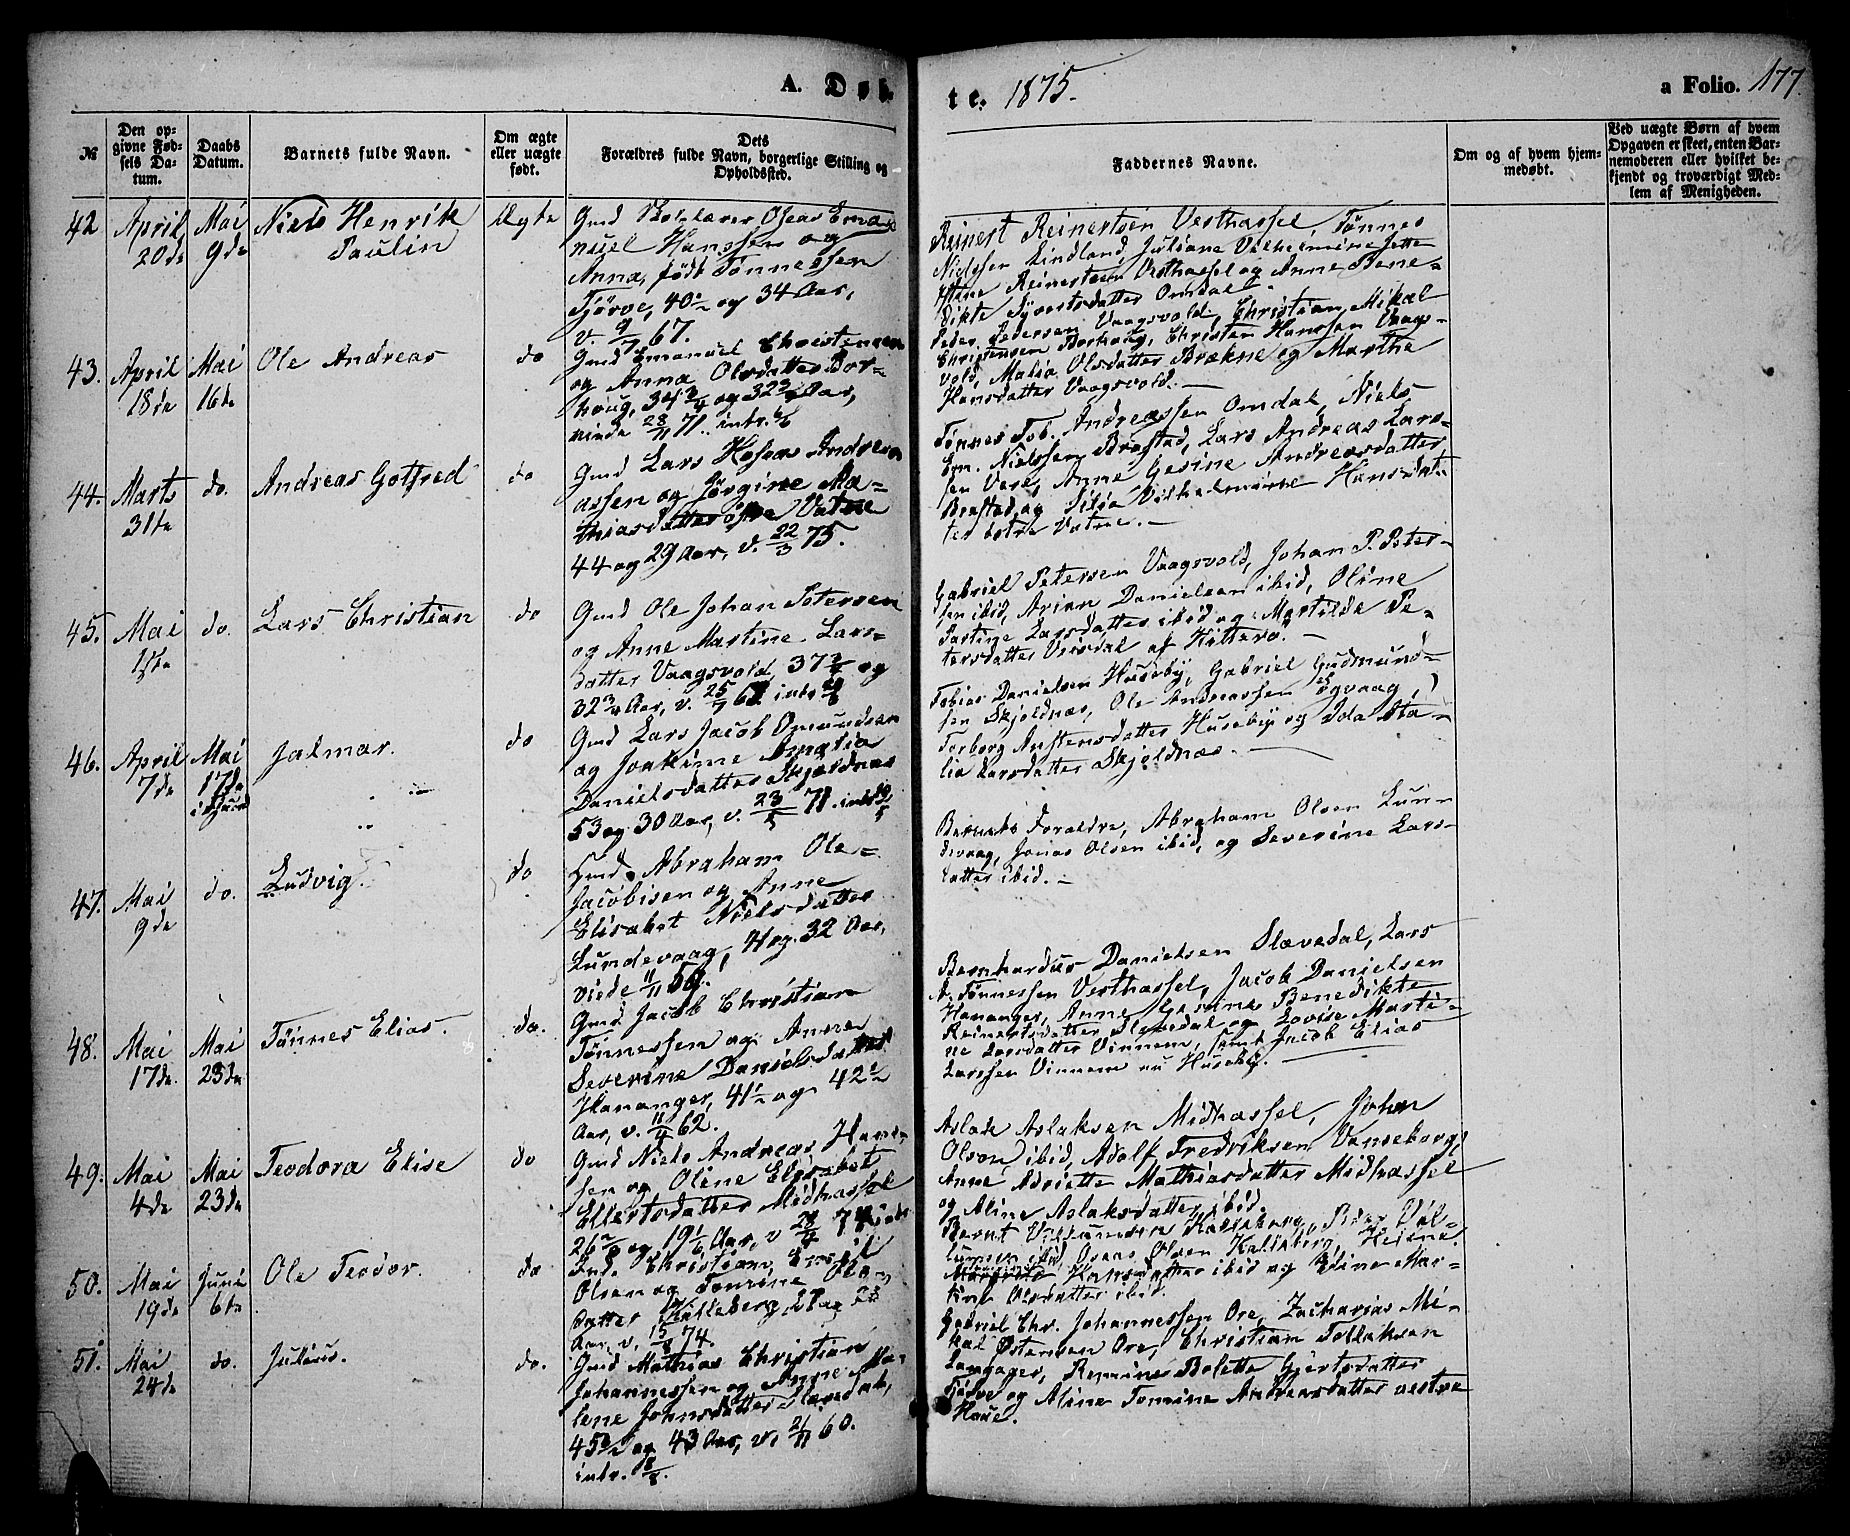 A. Døb-
te. 1875.
a Folio. 177.
№
Den op-
givne Fød-
sels Da-
tum.
Daabs
Datum.
Barnets fulde Navn.
Om ægte
eller uægte
født.
Dets
Forældres fulde Navn, borgerlige Stilling og
Opholdssted.
Faddernes Navne.
Om og af hvem hjem-
medøbt.
Ved uægte Børn af hvem
Opgaven er skeet, enten Bar-
nemoderen eller hvilket be-
kjendt og troværdigt Med-
lem af Menigheden.
42 April 20de Mai 9de Niels Henrik Paulin Ægte
Gmd Skolelærer Oseas Ema-
nuel Hanssen og
Anna, født Tønnessen
Tjørve, 40½ og 34 Aar,
v. 9/7 67.
Reinert Reinertsen Vesthassel, Tønnes
Nielssen Lindland, Juliane Vilhelmine Jette
Reinertsen Vesthassel og Anne Bene-
dikte Sjvertsdatter Omdal.
43. April 18de Mai 16de Ole Andreas do
Gmd Emanuel Christensen
og Anna Olsdatter Bor-
houg, 34¾ og 32¾ Aar,
viede 28/11 71. intr. 6/6
Peder Pedersen Vaagsvold, Christian Mikal
Christensen Borhoug, Christen Hanssen Vaags-
vold, Malia Olsdatter Brækne og Marthe
Hansdatter Vaagsvold.
44. Marts 31te do. Andreas Gotfred do
Gmd Lars Hoseas Andre-
assen og Jørgine Ma-
thiasdatter østre Vatne
44 og 29 Aar, v. 22/3 75.
Tønnes Tob. Andreassen Omdal, Niels
Em. Nielssen Brastad, Lars Andreas Lars-
sen Vere, Anne Gesine Andreasdatter
Brastad og Silia Vilhelmine Hansdat-
ter østre Vatne.
45. Mai 1ste do. Lars Christian do
Gmd Ole Johan Petersen
og Anne Martine Lars-
datter Vaagsvold, 37¾ og
32¾ Aar, v. 25/7 67 intr.
Gabriel Petersen Vaagsvold, Johan P. Peter-
sen ibid, Arian Danielsen ibid, Oline
Partine Larsdatter ibid og Martilde Pe-
tersdatter Veisdal af Hitterø.
46. April 7de Mai 17de Jalmar. do
Gmd Lars Jacob Omundsen
og Joakime Amalia
Danielsdatter Skjoldnæs
53 og 30 Aar, v. 23/5 71. intr.
Tobias Danielsen Huseby, Gabriel Gudmund-
sen Skjoldnæs, Ole Andreassen Egvaag,
Torborg Anstensdatter Huseby og Ida Ma-
lia Larsdatter Skjoldnæs.
47. Mai 9de do. Ludvig. do
Abraham Ole-
Jacobsen og Anne
Elisabet Nielsdatter
Lundevaag, 32 Aar,
viede 11/11 59.
Barnets Forældre, Abraham Olsen Lun-
devaag, Jonas Olsen ibid, og Severine Lars-
datter ibid.
48. Mai 17de. Mai 23de Tønnes Elias. do.
Gmd Jacob Christian
Tønnessen og Anne
Severine Danielsdatter
Hananger, 41½ og 42½
Aar, v. 11/4 62.
Bernhardus Danielsen Slævedal, Lars
A. Tønnessen Vesthassel, Jacob Danielsen
Hananger, Anne Gesine Benedikte
Reinertsdatter Slævedal og Lovise Marti-
ne Larsdatter Vinnem, samt Jacob Elias
Larssen Vinnem nu Huseby.
49. Mai 4de Mai 23de Teodora Elise do
Gmd Niels Andreas Hans-
sen og Oline Elisabet
Ellertsdatter Midhassel
og 19 1/6 Aar, v
Aslak Aslaksen Midhassel, Johan
Olsen ibid, Adolf Fredriksen Vanseborg,
Anne Adriette Mathiasdatter Midhassel
og Aline Aslaksdatter ibid.
50. Mai 19de Juni 6te Ole Teodor. do
Christian Emil
Olsen og Tomine Ols-
datter Kalleberg
Aar, v. 15/8 74.
Bernt Kalleberg, Peder
ibid, Oseas Olsen Kalleberg,
Hansdatter ibid og Edine Mar-
tine Olsdatter ibid.
51. Mai 24de do. Julius. do.
Gmd Mathias Christian
Johannessen og Anne Ma-
lene Johnsdatter Slævedal,
45½ og 43 Aar, v. 2/11 60.
intr. 8/8.
Gabriel Chr. Johannessen Ore, Zacharias Mi-
kal Østensen Ore, Christian Tollaksen
Langager, Remine Bolette Gjertsdatter
Tjørve og Aline Tomine Andreasdatter vestre
Haue.